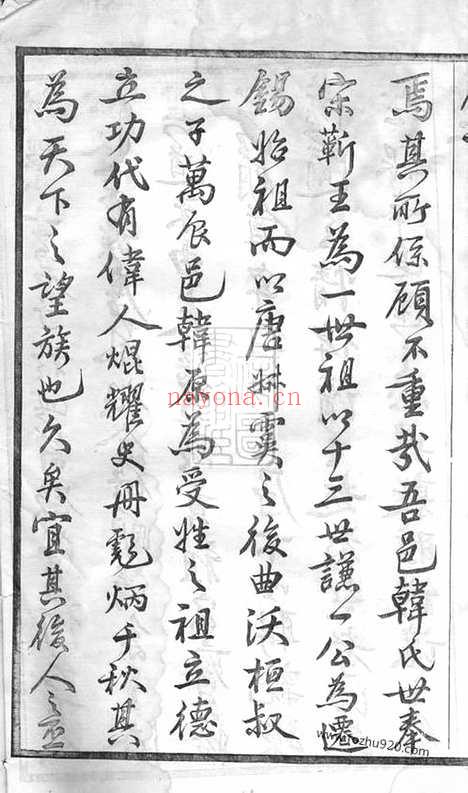 焉其所係顧不重哉吾邑韓氏世奉
宋蘄王為一世祖以十三世謙一公為遷
錫始祖而以唐叔虞之後曲沃桓叔
之子萬食邑韓原為受姓之祖立德
立功代有偉人焜耀史冊彪炳千秋其
為天下之望族也久矣宜其後人之亟
nayona.cn